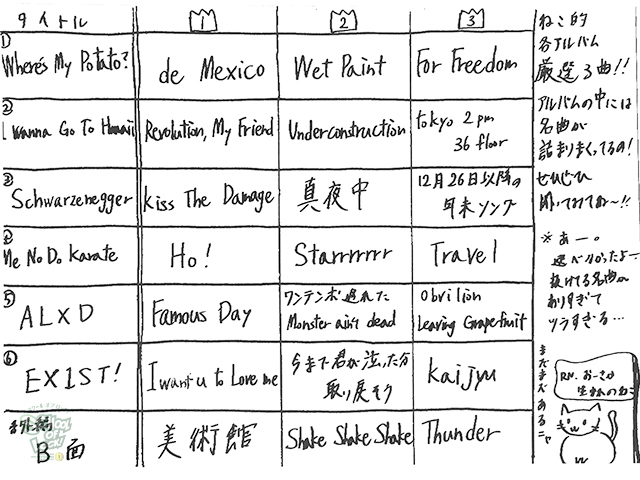 タイトル 1 2 3
① Where's My Potato? de Mexico Wet Paint For Freedom
② I wanna Go To Hawaii Revolution, My Friend Underconstruction tokyo 2 pm
36 floor
③ Schwarzenegger Kiss The Damage 真夜中 12月26日以降の
年末ソング
④ Me No Do Karate Ho! Starrrrrrr Travel
⑤ ALXD Famous Day ワンテンポ遅れた
Monster ain't dead Obvilion
Leaving Grapefruit
⑥ EX1ST! I want u to Love me 今まで君が泣いた分
取り戻そう Kaijyu
番外編
B面 美術館 Shake Shake Shake Thunder
ねこ的
各アルバム
厳選3曲!!
アルバムの中には
名曲が
詰まりまくってるの!
ぜひぜひ
聞いてみてね〜!!
※あー。
選べなかったよー
抜けてる名曲が
ありすぎて
ツラすぎる…
まだまだあるニャ
RN. おーさか
生まれのねこ